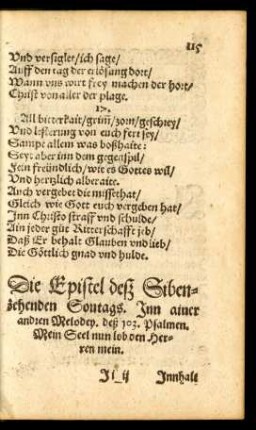 115
Vnd versiglet/ ich sage/
Auff den tag der erlösung dort/
Wann vns wirt frey machen der hort/
Christ von aller der plage.
17.
All bitterkait/ grim̃/ zorn/ geschrey/
Vnd lesterung von euch fert sey/
Sampt allem was boßhaite:
Seyt aber inn dem gegenspil/
Fein freündlich/ wie es Gottes wil/
Vnd hertzlich alberaite.
Auch vergebet die missethat/
Gleich wie Gott euch vergeben hat/
Inn Christo straff vnd schulde/
Ain jeder güt Ritterschafft jeb/
Daß Er behalt Glauben vnd lieb/
Die Göttlich gnad vnd hulde.
Die Epistel deß Siben-
zehenden Sontags. Inn ainer
andren Melodey. deß 103. Psalmen.
Mein Seel nun lob den Her-
ren mein.
Innhalt